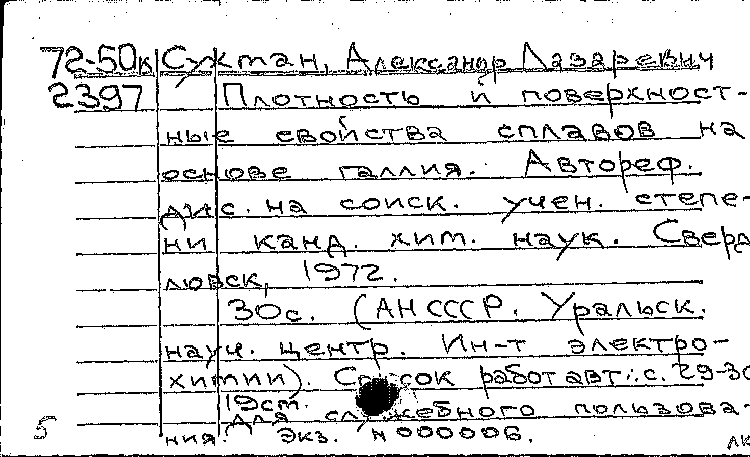 72-50к Сухман, Александр Лазаревич
2397 Плотность и поверхност-
ные свойства сплавов на
основе галлия. Автореф.
дис. на соиск. учен. степе-
ни канд. хим. наук. Сверд
ловск, 1972.
30с. (АН СССР. Уральск.
науч. центр. Ин-т электро-
химии). Список работ авт.: с. 29-30
19ст.
Для служебного пользова-
5 ния. Экз. N 000006. лк